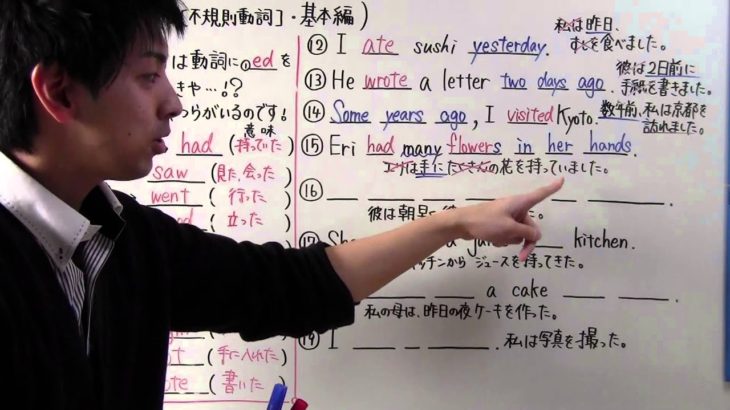 [不規則動詞]・基本編)
は動詞に①edを
きや…!?
つらがいるのです!
意味
had (持っていた)
saw (見た,会った)
went (行った)
(立った)
(手に入れた)
(書いた)
⑫ I ate sushi yesterday. 私は昨日、すしを食べました。
⑬ He wrote a letter two days ago. 彼は2日前に手紙を書きました。
⑭ Some years ago, I visited Kyoto. 数年前、私は京都を訪れました。
⑮ Eri had many flowers in her hands.
エリは手にたくさんの花を持っていました。
⑯
彼は朝早
た。
kitchen.
ッチンから ジュースを持ってきた。
a cake
私の母は、昨日の夜ケーキを作った。
⑲ I 私は写真を撮った。